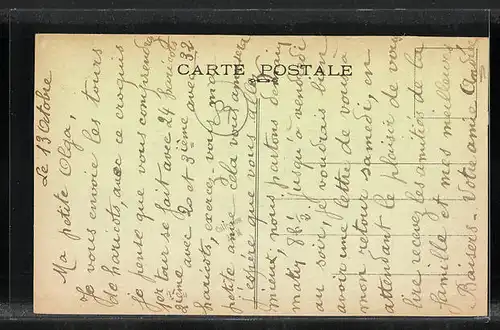 CARTE POSTALE
Le 13 Octobre
Ma petite Olga,
Je vous envoie les tours
de haricots, avec ce croquis
Je pense que vous comprendrez
1er tour se fait avec 24 haricots
2ième avec 20 et 3ième avec 32
haricots, exercez vous ma
petite amie cela vous
j'espère que vous allez
mieux, nous partons demain
matin 8h ½ jusqu'à vendredi
au soir, je voudrais bien
avoir une lettre de vous à
mon retour samedi, en
attendant le plaisir de vous
lire recevez les amitiés de la
famille et mes meilleurs
Baisers - Votre amie